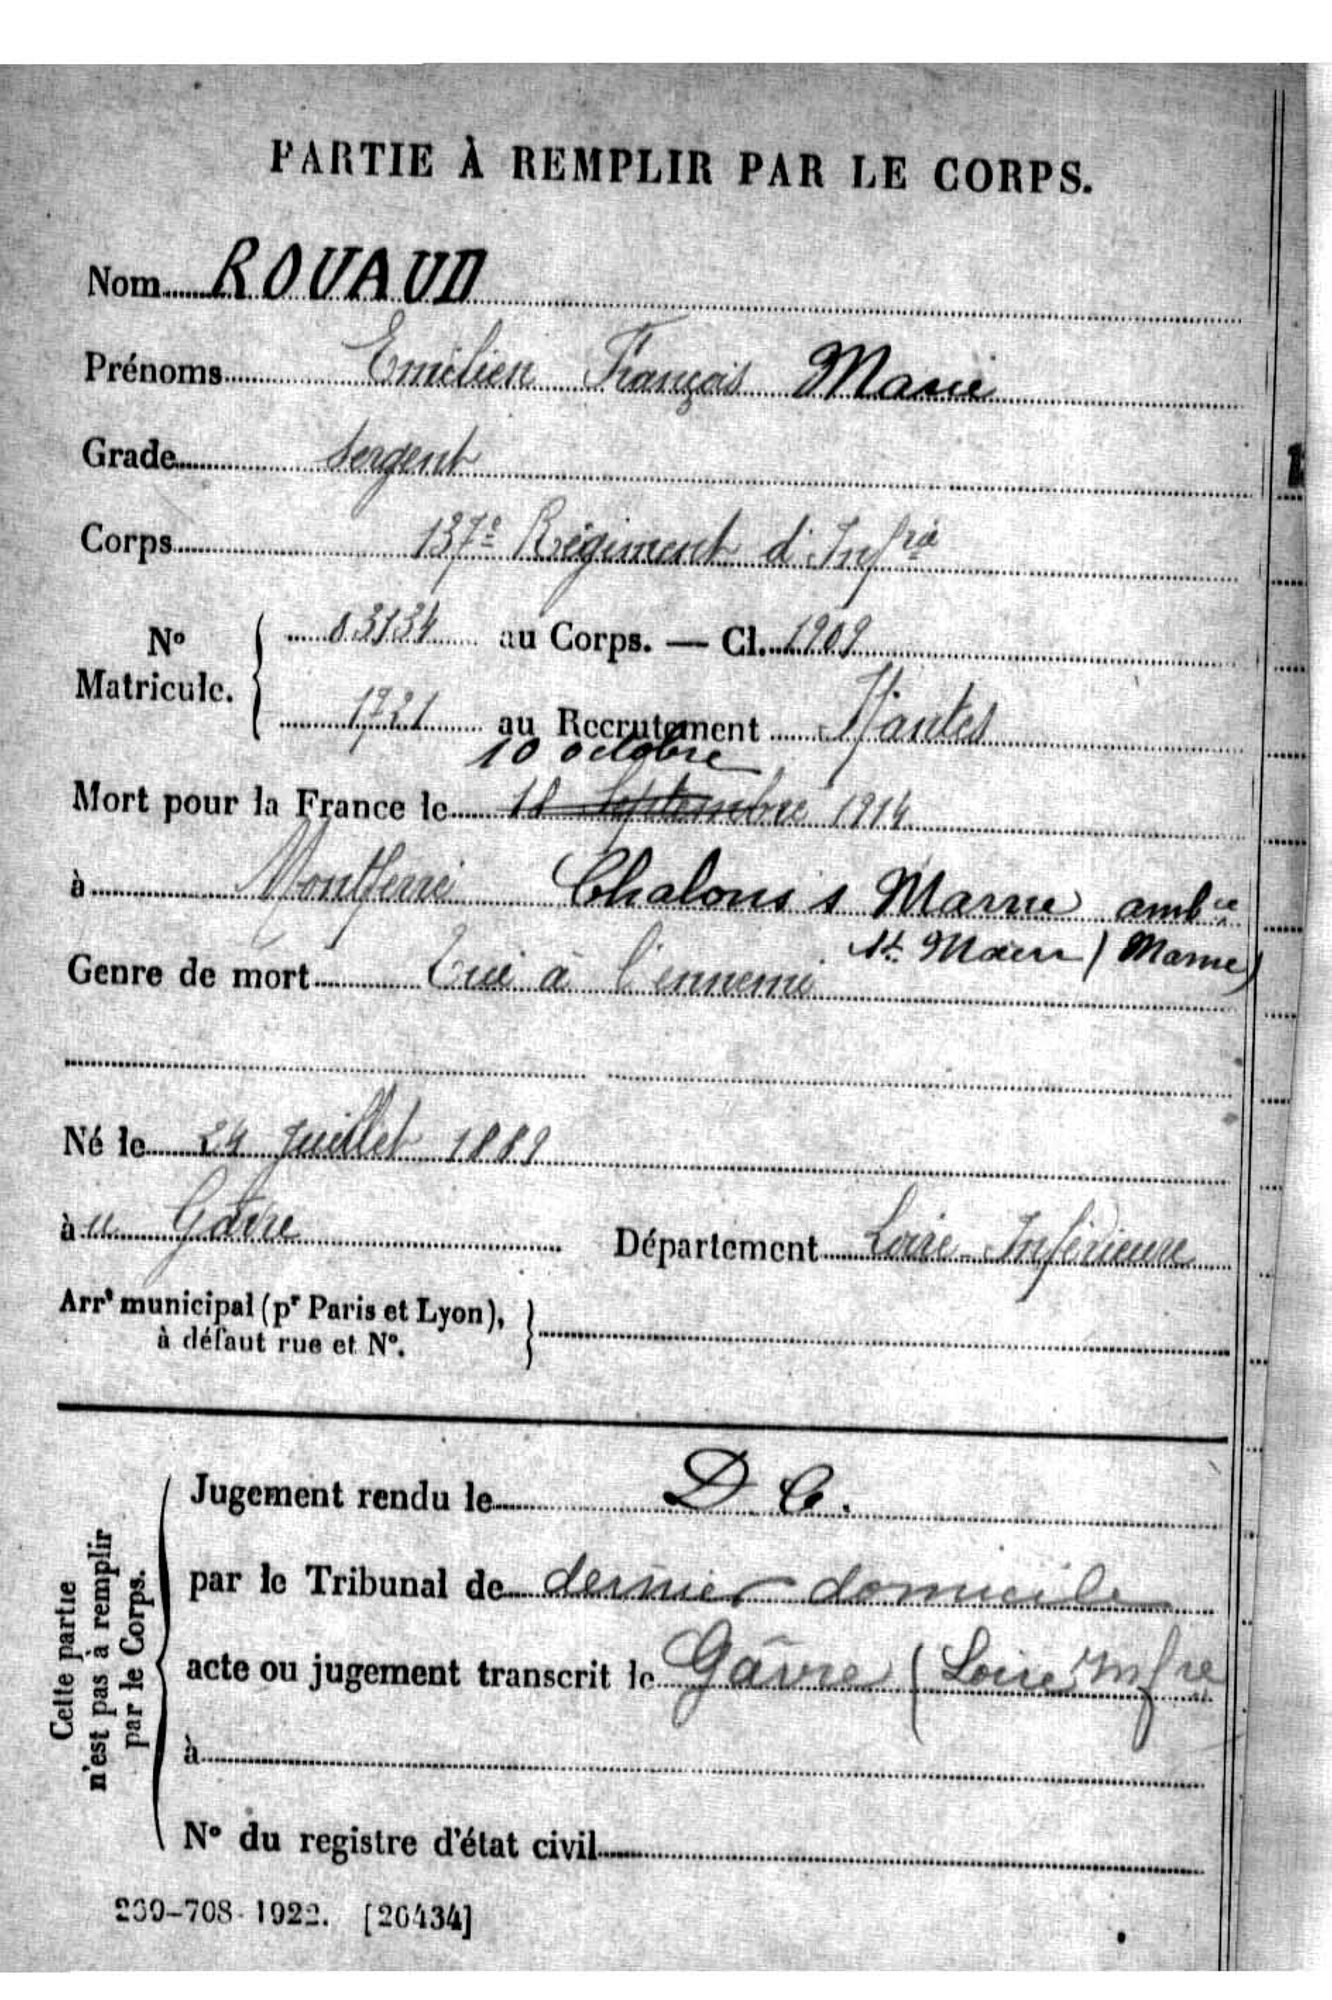 PARTIE À REMPLIR PAR LE CORPS.
Nom ROUAUD
Prénoms Emilien François Marie
Grade Sergent
Corps 137e Régiment d'Infrie
No Matricule. 03134 au Corps. — Cl. 1909
1721 au Recrutement Nantes
10 octobre
Mort pour la France le 18 Septembre 1914
à Chalons s Marne ambce
St (Marne)
Genre de mort Tué à l'ennemi
Né le 24 Juillet 1889
à Gâvre Département Loire-Inférieure
Arrt municipal (pr Paris et Lyon),
à défaut rue et No.
Cette partie
n'est pas à remplir
par le Corps.
Jugement rendu le D C.
par le Tribunal de dernier domicile
acte ou jugement transcrit le Gâvre (Loire Infre
à
No du registre d'état civil
-708-1922. [26434]